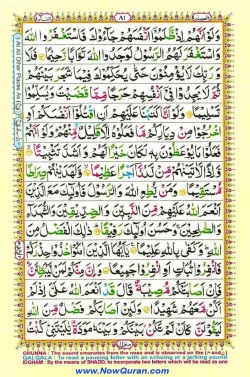 ٨١
وَلَوْ اَنَّهُمْ اِذْ ظَّلَمُوْۤا اَنْفُسَهُمْ جَآءُوْكَ فَاسْتَغْفَرُوا اللّٰهَ
وَاسْتَغْفَرَ لَهُمُ الرَّسُوْلُ لَوَجَدُوا اللّٰهَ تَوَّابًا رَّحِيْمًا فَلَا
وَ رَبِّكَ لَا يُؤْمِنُوْنَ حَتّٰى يُحَكِّمُوْكَ فِيْمَا شَجَرَ بَيْنَهُمْ
ثُمَّ لَا يَجِدُوْا فِيْۤ اَنْفُسِهِمْ حَرَجًا مِّمَّا قَضَيْتَ وَيُسَلِّمُوْا
تَسْلِيْمًا وَلَوْ اَنَّا كَتَبْنَا عَلَيْهِمْ اَنِ اقْتُلُوْۤا اَنْفُسَكُمْ اَوِ
اخْرُجُوْا مِنْ دِيَارِكُمْ مَّا فَعَلُوْهُ اِلَّا قَلِيْلٌ مِّنْهُمْ وَلَوْ اَنَّهُمْ
فَعَلُوْا مَا يُوْعَظُوْنَ بِهٖ لَكَانَ خَيْرًا لَّهُمْ وَاَشَدَّ تَثْبِيْتًا
وَّاِذًا لَّاٰتَيْنٰهُمْ مِّنْ لَّدُنَّاۤ اَجْرًا عَظِيْمًا وَّلَهَدَيْنٰهُمْ صِرَاطًا
مُّسْتَقِيْمًا وَمَنْ يُّطِعِ اللّٰهَ وَالرَّسُوْلَ فَاُولٰٓئِكَ مَعَ الَّذِيْنَ
اَنْعَمَ اللّٰهُ عَلَيْهِمْ مِّنَ النَّبِيّٖنَ وَالصِّدِّيْقِيْنَ وَالشُّهَدَآءِ
وَالصّٰلِحِيْنَ وَحَسُنَ اُولٰٓئِكَ رَفِيْقًا ذٰلِكَ الْفَضْلُ مِنَ
اللّٰهِ وَكَفٰى بِاللّٰهِ عَلِيْمًا يٰۤاَيُّهَا الَّذِيْنَ اٰمَنُوْا خُذُوْا حِذْرَكُمْ
فَانْفِرُوْا ثُبَاتٍ اَوِ انْفِرُوْا جَمِيْعًا وَاِنَّ مِنْكُمْ لَمَنْ لَّيُبَطِّئَنَّ
فَاِنْ اَصَابَتْكُمْ مُّصِيْبَةٌ قَالَ قَدْ اَنْعَمَ اللّٰهُ عَلَيَّ اِذْ لَمْ
اَكُنْ مَّعَهُمْ شَهِيْدًا وَلَئِنْ اَصَابَكُمْ فَضْلٌ مِّنَ اللّٰهِ
لَيَقُوْلَنَّ كَاَنْ لَّمْ تَكُنْۢ بَيْنَكُمْ وَبَيْنَهٗ مَوَدَّةٌ يّٰلَيْتَنِيْ كُنْتُ
GHUNNA : The sound emanates from the nose and is observed on the
QALQALA : To read a pausing letter with an echoing or a jerking sound
IDGHAM : By the means of SHADD, to incorporate two letters which will be read as one
www.NowQuran.com